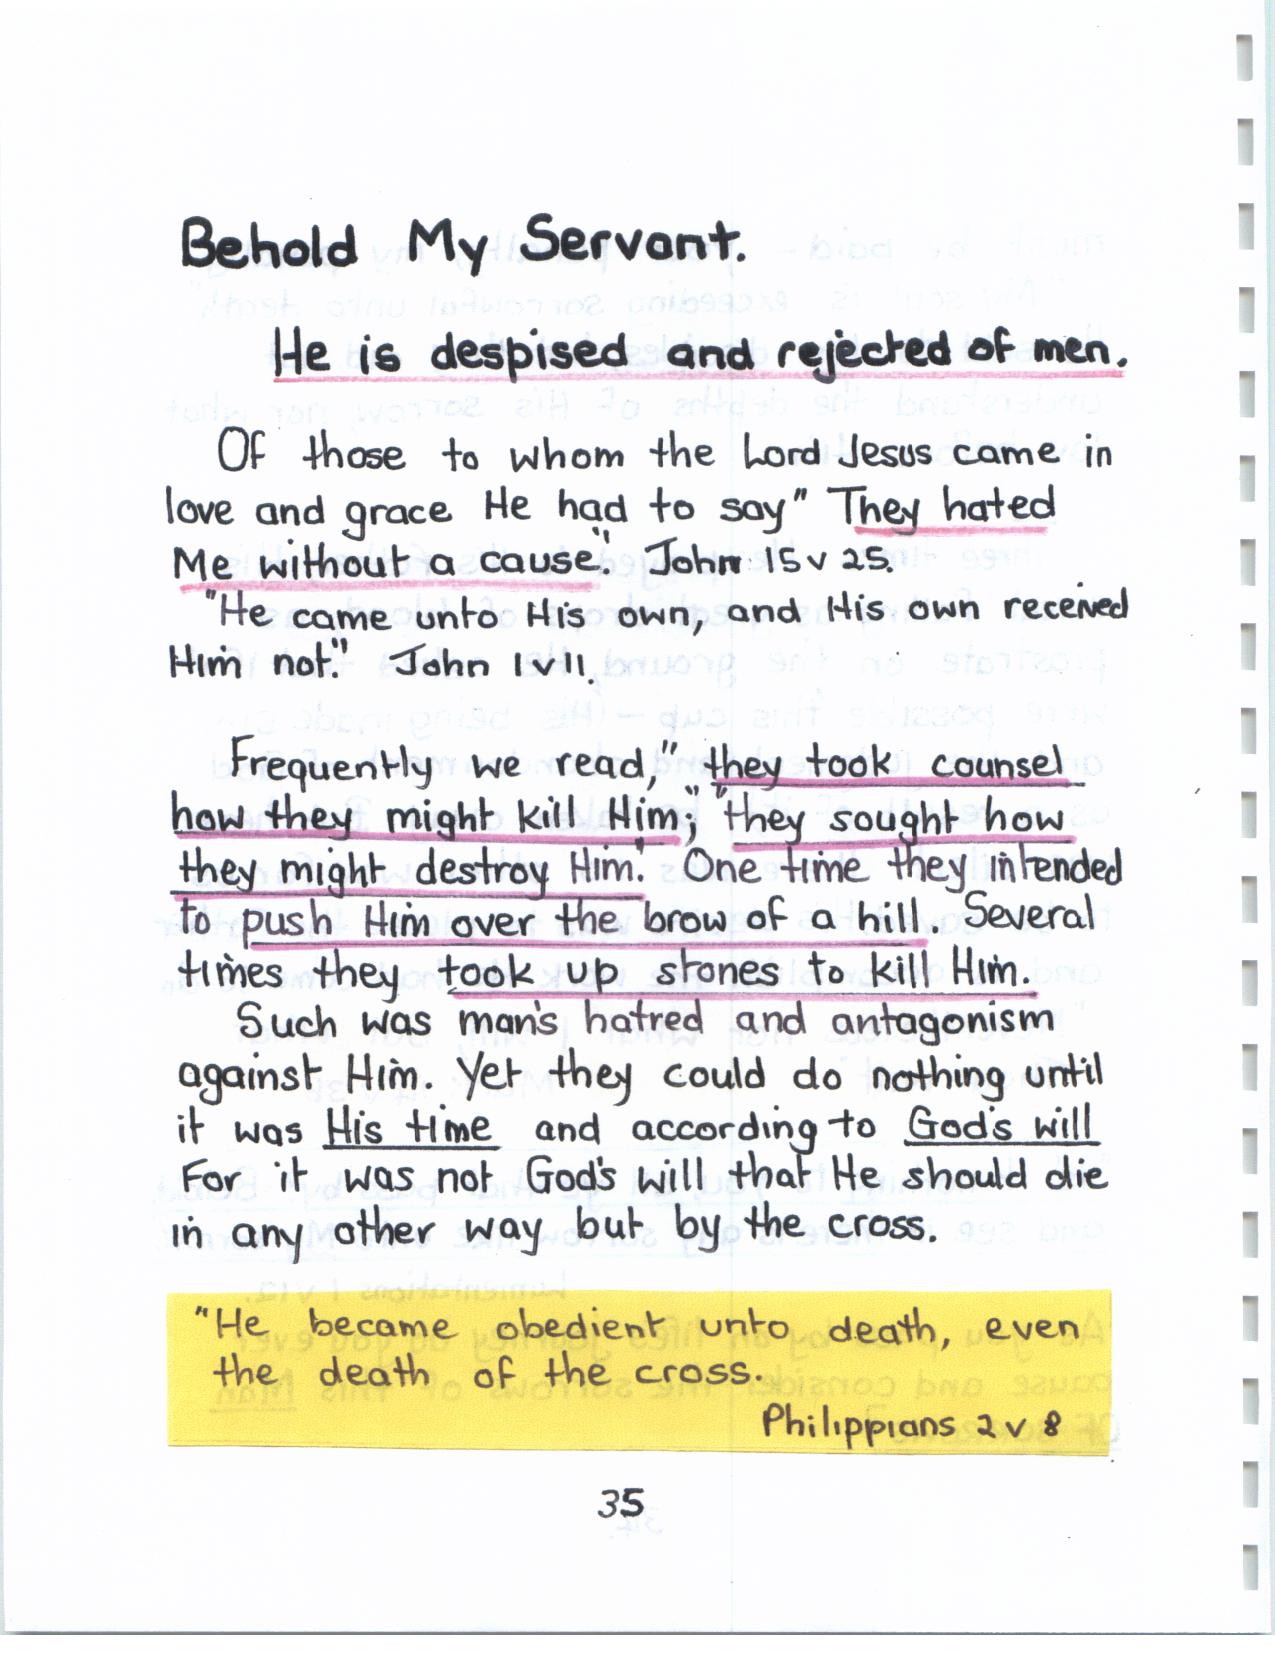 Behold My Servant.
He is despised and rejected of men.
Of those to whom the Lord Jesus came in
love and grace He had to say" They hated
Me without a cause". John 15 v 25.
"He came unto His own, and His own received
Him not." John 1 v 11.
Frequently we read," they took counsel
how they might kill Him", "they sought how
they might destroy Him." One time they intended
to push Him over the brow of a hill Several
times they took up stones to kill Him.
Such was man's hatred and antagonism
against Him. Yet they could do nothing until
it was His time and according to God's will
For it was not God's will that He should die
in any other way but by the cross.
"He became obedient unto death, even
the death of the cross.
Philippians 2 v 8
35